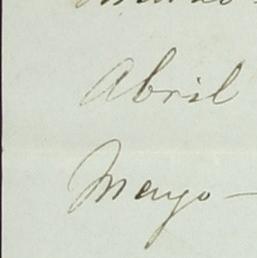 Abril
Mayo -